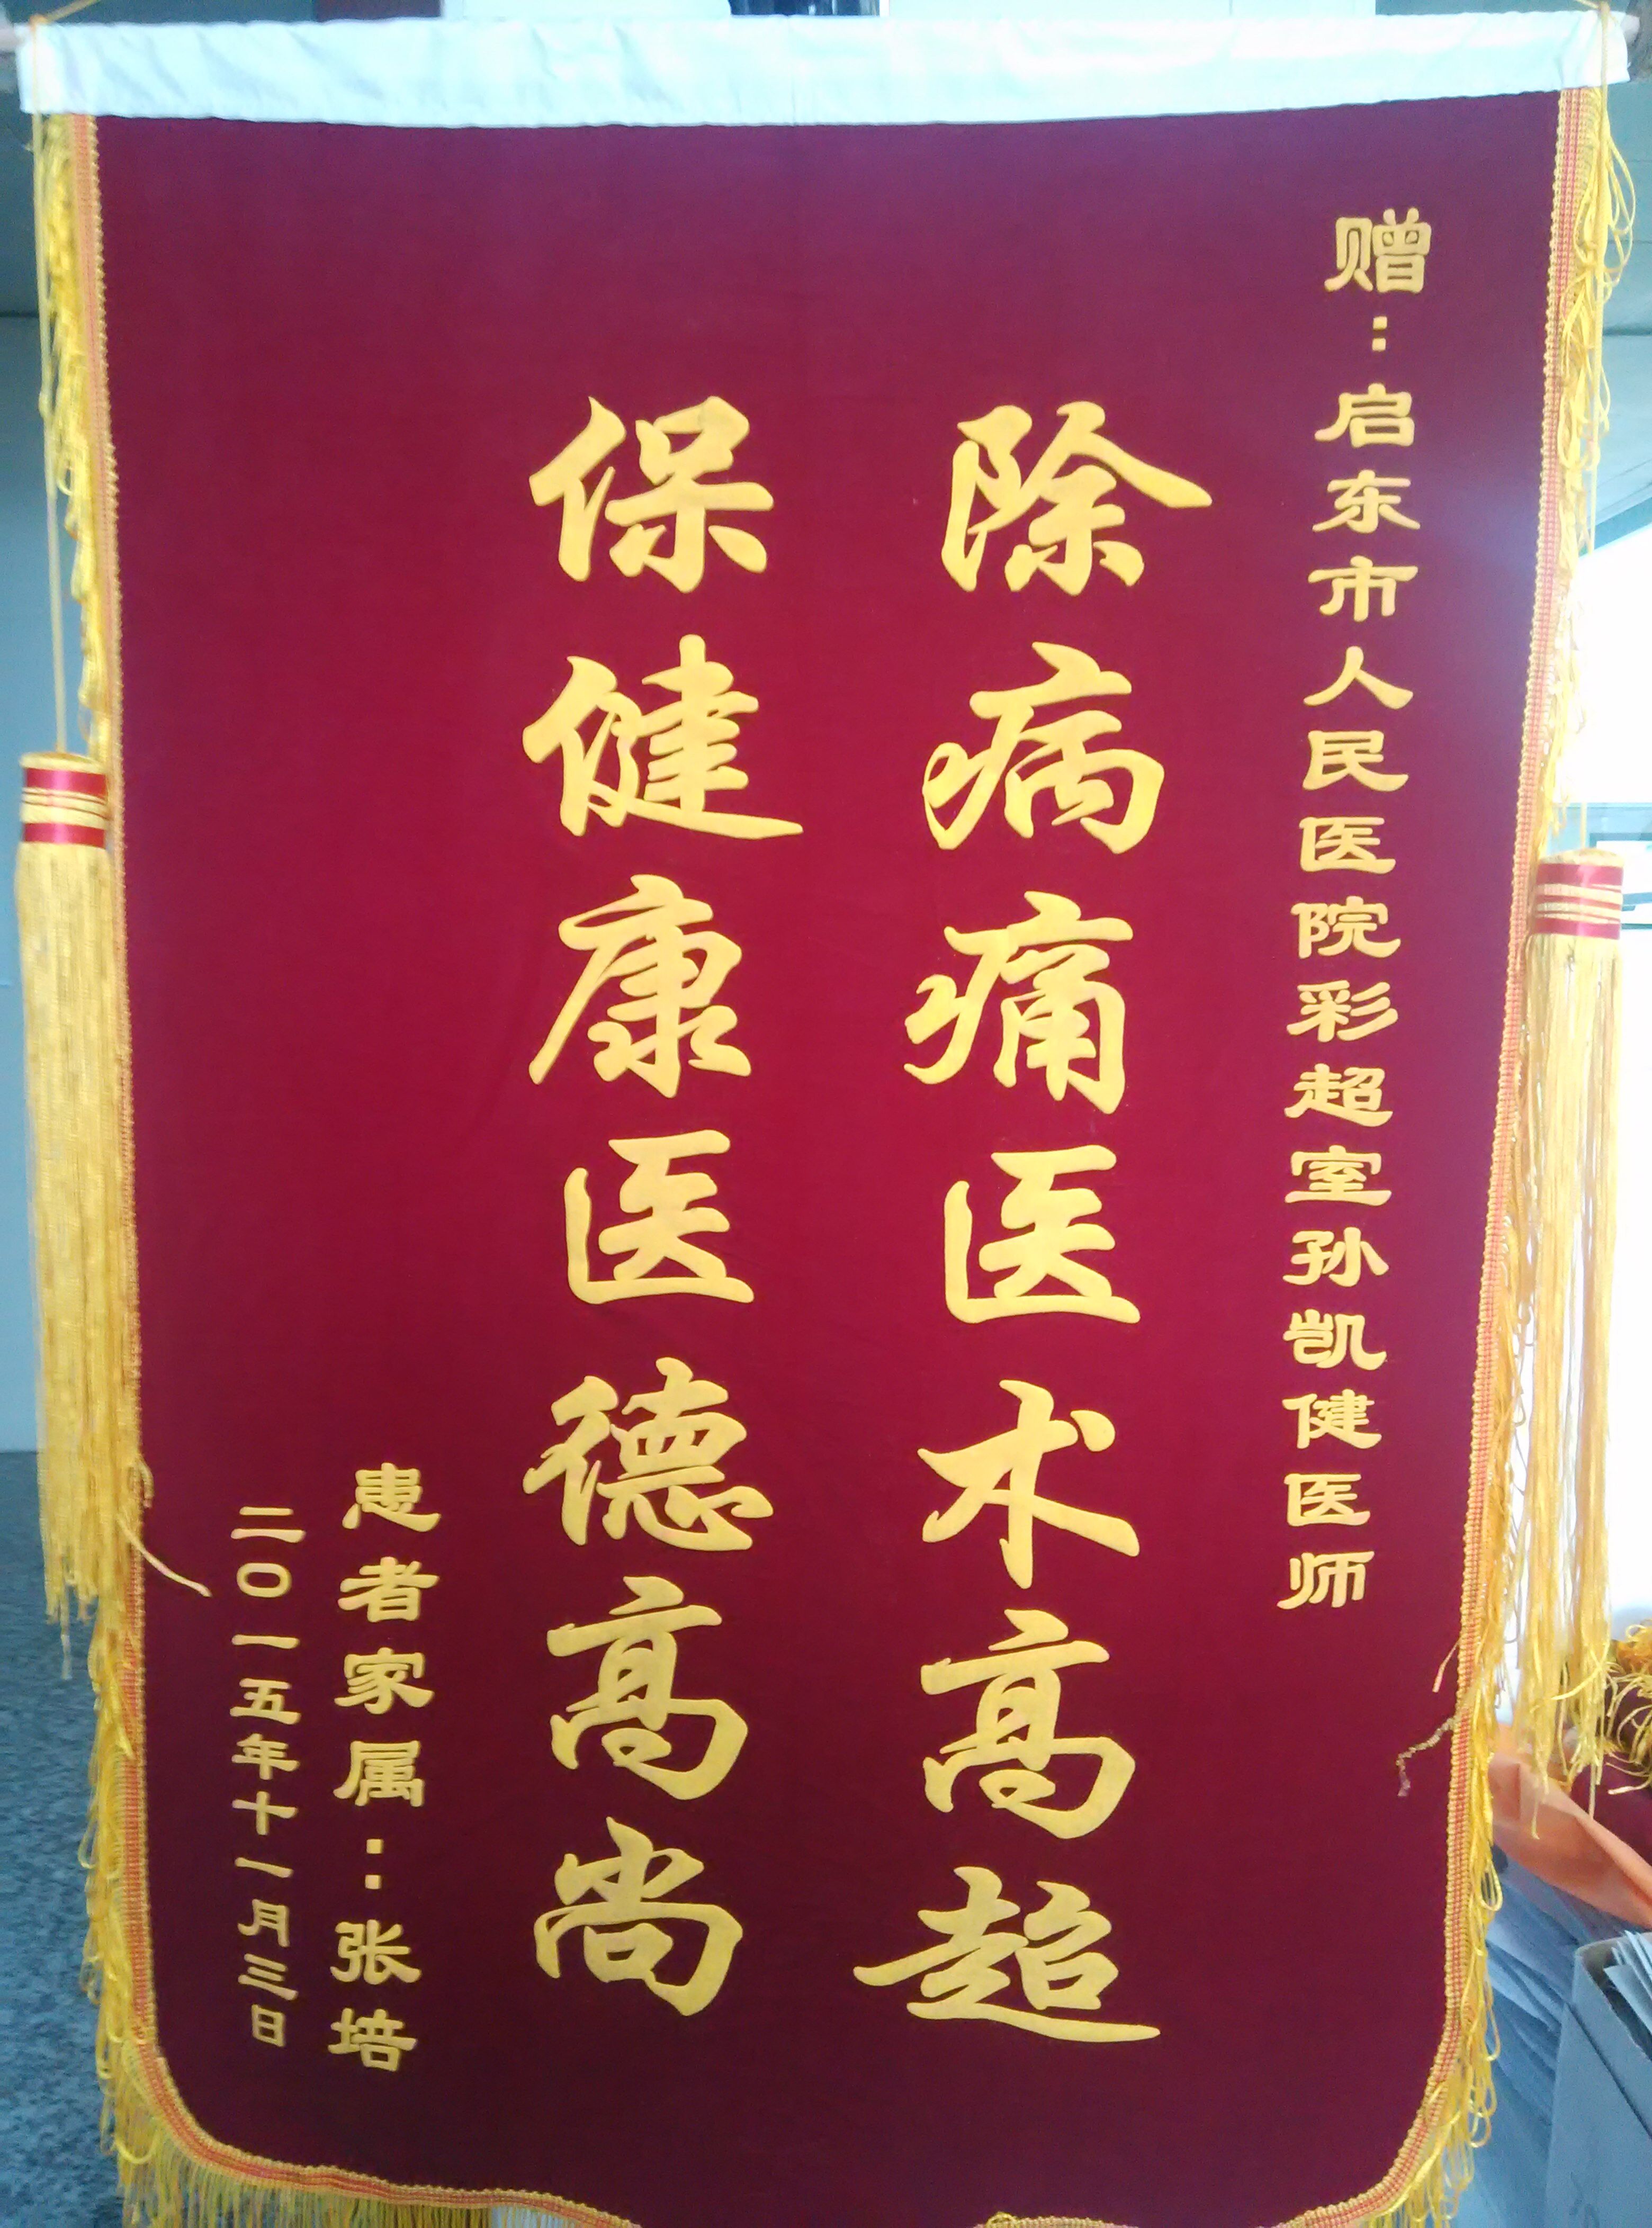 赠：启东市人民医院彩超室孙凯健医师
除病痛医术高超
保健康医德高尚
患者家属：张培
二〇一五年十一月三日